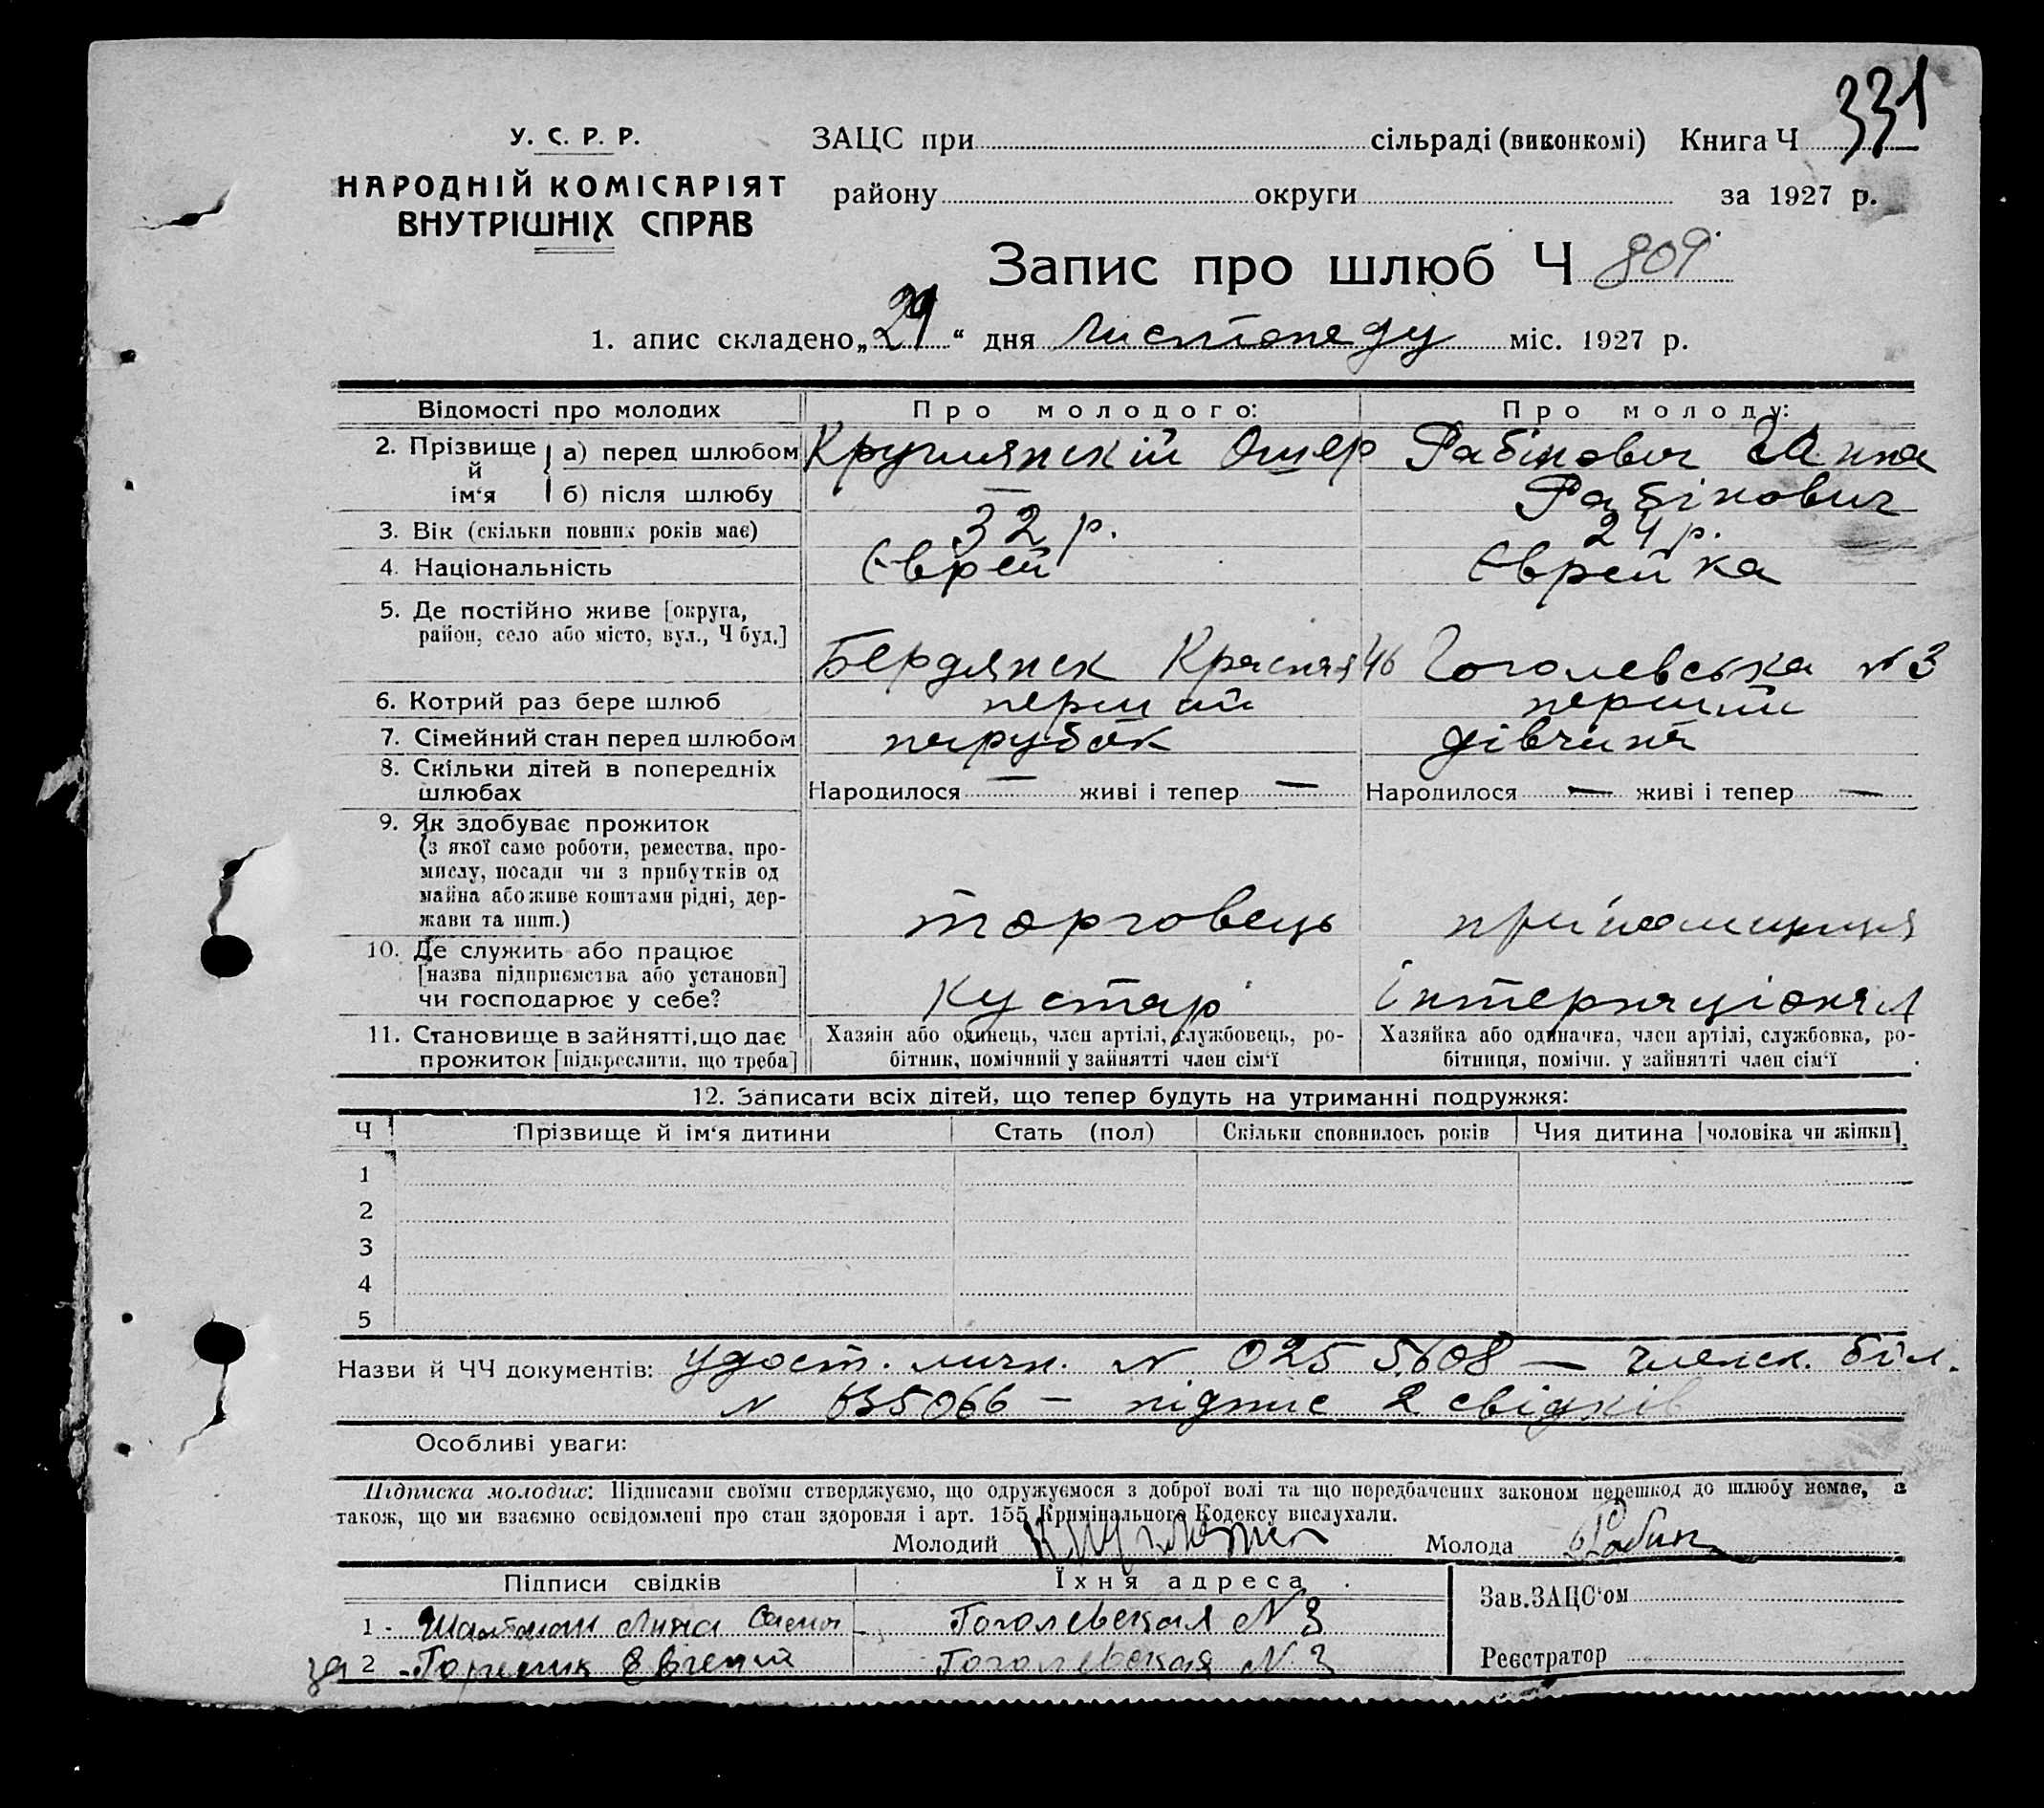 331
У. С. Р. Р.
НАРОДНІЙ КОМІСАРІЯТ
ВНУТРІШНІХ СПРАВ
ЗАЦС при сільраді (виконкомі) Книга Ч
району округи за 1927 р.
Запис про шлюб Ч 809
1. апис складено „29“ дня Листопаду міс. 1927 р.
Відомості про молодих Про молодого: Про молоду:
2. Прізвище й ім‘я а) перед шлюбом Круглянскій Ошер Рабінович Ганна
б) після шлюбу — Рабінович
3. Вік (скільки повних років має) 32 р. 24 р.
4. Національність Єврей Єврейка
5. Де постійно живе [округа,
район, село або місто, вул., Ч буд.]
Бердянск Красная 46 Гоголевська № 3
6. Котрий раз бере шлюб перший перший
7. Сімейний стан перед шлюбом парубок дівчина
8. Скільки дітей в попередніх
шлюбах Народилося — живі і тепер — Народилося — живі і тепер —
9. Як здобуває прожиток
(з якої само роботи, ремества, про-
мислу, посади чи з прибутків од
майна або живе коштами рідні, дер-
жави та инш.) торговець
10. Де служить або працює
[назва підприємства або установи]
чи господарює у себе? кустар Інтернаціонал
11. Становище в зайнятті, що дає Хазяїн або одинець, член артілі, службовець, ро- Хазяйка або одиначка, член артілі, службовка, ро-
прожиток [підкреслити, що треба] бітник, помічний у зайнятті член сім‘ї бітниця, помічн. у зайнятті член сім‘ї
12. Записати всіх дітей, що тепер будуть на утриманні подружжя:
Ч Прізвище й ім‘я дитини Стать (пол) Скільки сповнилось років Чия дитина [чоловіка чи жінки]
1
2
3
4
5
Назви й ЧЧ документів: Удост. личн. № 0255608 — членск. біл.
№ 635066 — підпис 2 свідків
Особливі уваги:
Підписка молодих: Підписами своїми стверджуємо, що одружуємося з доброї волі та що передбачених законом перешкод до шлюбу немає, а
також, що ми взаємно освідомлені про стан здоровля і арт. 155 Кримінального Кодексу вислухали.
Молодий Молода
Підписи свідків Їхня адреса
1 Лина Гоголевская № 3
2 Евгений Гоголевская № 3
Зав. ЗАЦС‘ом
Реєстратор